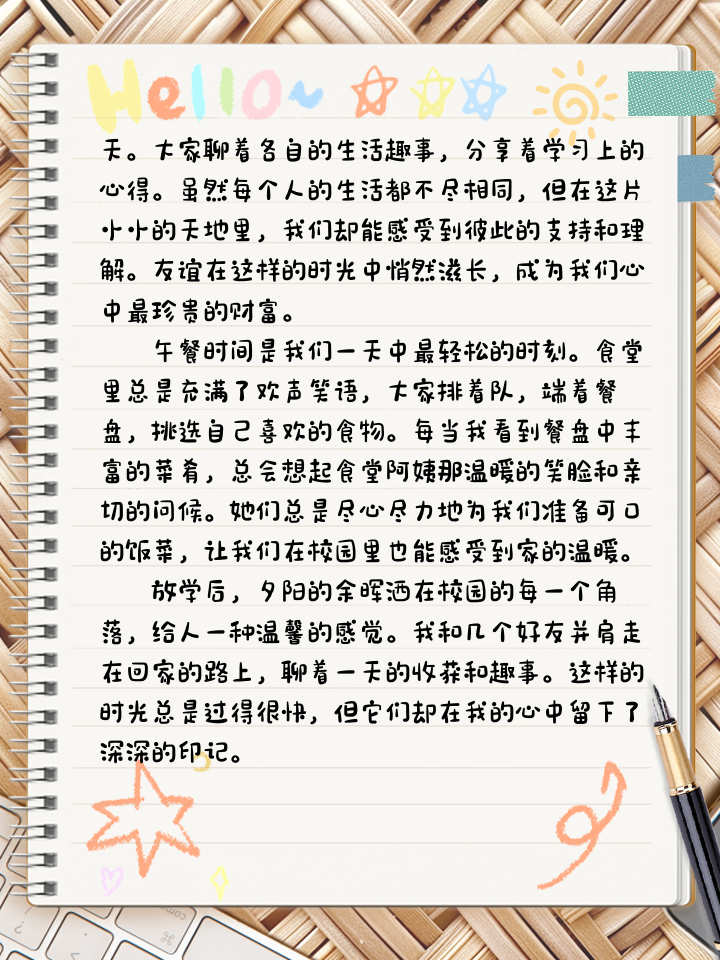 Hello~
天。大家聊着各自的生活趣事，分享着学习上的
心得。虽然每个人的生活都不尽相同，但在这片
小小的天地里，我们却能感受到彼此的支持和理
解。友谊在这样的时光中悄然滋长，成为我们心
中最珍贵的财富。
午餐时间是我们一天中最轻松的时刻。食堂
里总是充满了欢声笑语，大家排着队，端着餐
盘，挑选自己喜欢的食物。每当我看到餐盘中丰
富的菜肴，总会想起食堂阿姨那温暖的笑脸和亲
切的问候。她们总是尽心尽力地为我们准备可口
的饭菜，让我们在校园里也能感受到家的温暖。
放学后，夕阳的余晖洒在校园的每一个角
落，给人一种温馨的感觉。我和几个好友并肩走
在回家的路上，聊着一天的收获和趣事。这样的
时光总是过得很快，但它们却在我的心中留下了
深深的印记。